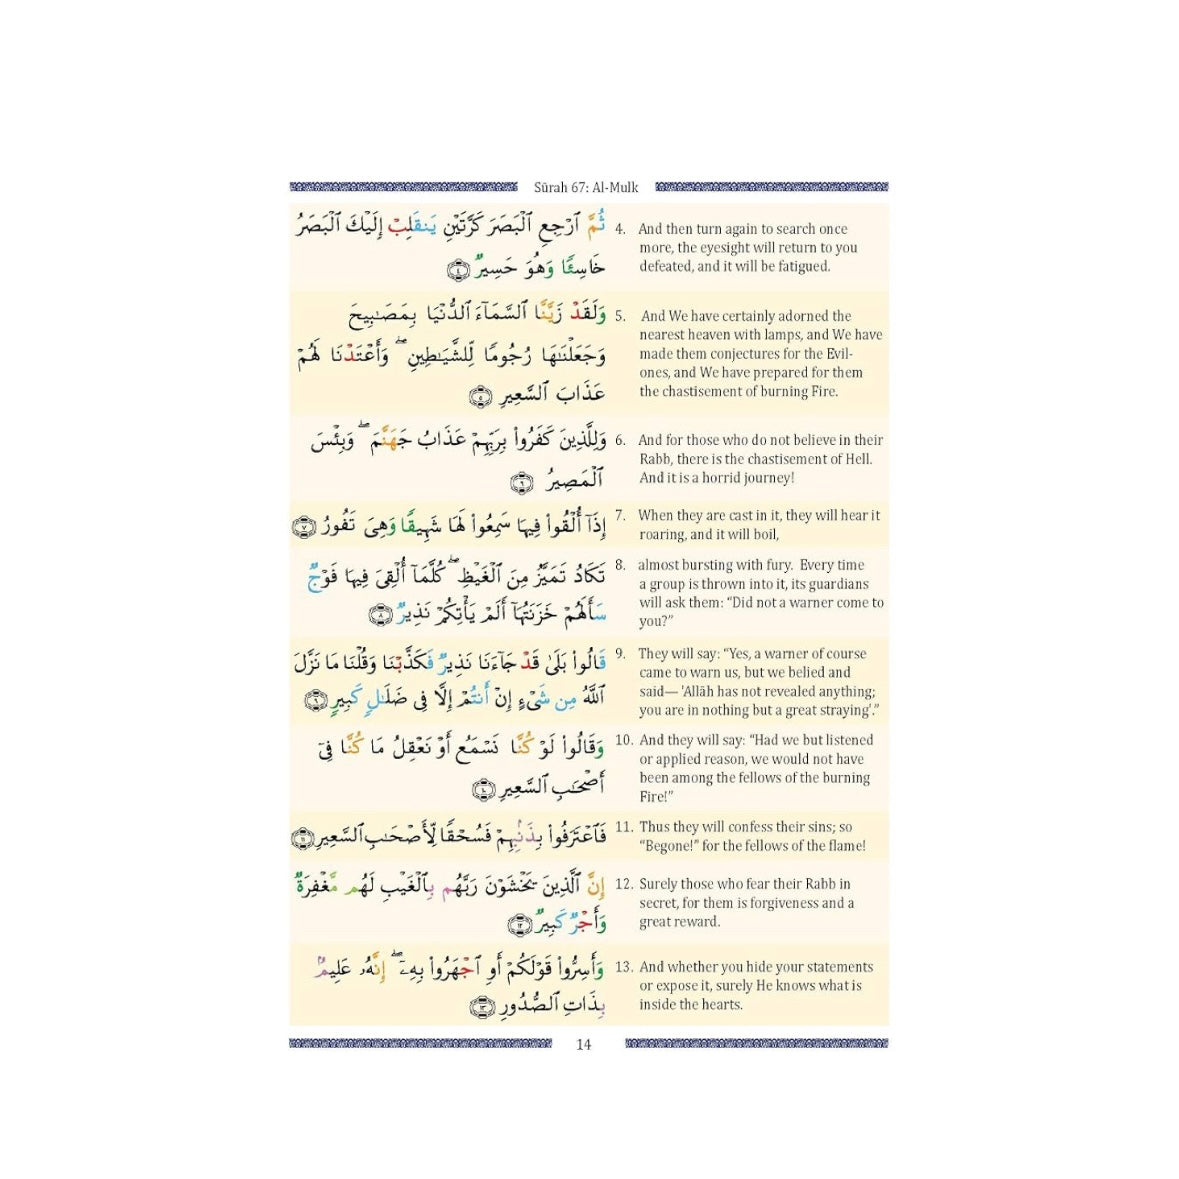 Sūrah 67: Al-Mulk
ثُمَّ ٱرْجِعِ ٱلْبَصَرَ كَرَّتَيْنِ يَنقَلِبْ إِلَيْكَ ٱلْبَصَرُ
خَاسِئًا وَهُوَ حَسِيرٌ ٤
4. And then turn again to search once
more, the eyesight will return to you
defeated, and it will be fatigued.
وَلَقَدْ زَيَّنَّا ٱلسَّمَآءَ ٱلدُّنْيَا بِمَصَٰبِيحَ
وَجَعَلْنَٰهَا رُجُومًا لِّلشَّيَٰطِينِ ۖ وَأَعْتَدْنَا لَهُمْ
عَذَابَ ٱلسَّعِيرِ ٥
5. And We have certainly adorned the
nearest heaven with lamps, and We have
made them conjectures for the Evil-
ones, and We have prepared for them
the chastisement of burning Fire.
وَلِلَّذِينَ كَفَرُوا۟ بِرَبِّهِمْ عَذَابُ جَهَنَّمَ ۖ وَبِئْسَ
ٱلْمَصِيرُ ٦
6. And for those who do not believe in their
Rabb, there is the chastisement of Hell.
And it is a horrid journey!
إِذَآ أُلْقُوا۟ فِيهَا سَمِعُوا۟ لَهَا شَهِيقًا وَهِىَ تَفُورُ ٧
7. When they are cast in it, they will hear it
roaring, and it will boil,
تَكَادُ تَمَيَّزُ مِنَ ٱلْغَيْظِ ۖ كُلَّمَآ أُلْقِىَ فِيهَا فَوْجٌ
سَأَلَهُمْ خَزَنَتُهَآ أَلَمْ يَأْتِكُمْ نَذِيرٌ ٨
8. almost bursting with fury. Every time
a group is thrown into it, its guardians
will ask them: “Did not a warner come to
you?”
قَالُوا۟ بَلَىٰ قَدْ جَآءَنَا نَذِيرٌ فَكَذَّبْنَا وَقُلْنَا مَا نَزَّلَ
ٱللَّهُ مِن شَىْءٍ إِنْ أَنتُمْ إِلَّا فِى ضَلَٰلٍ كَبِيرٍ ٩
9. They will say: “Yes, a warner of course
came to warn us, but we belied and
said— 'Allāh has not revealed anything;
you are in nothing but a great straying'.”
وَقَالُوا۟ لَوْ كُنَّا نَسْمَعُ أَوْ نَعْقِلُ مَا كُنَّا فِىٓ
أَصْحَٰبِ ٱلسَّعِيرِ ١٠
10. And they will say: “Had we but listened
or applied reason, we would not have
been among the fellows of the burning
Fire!”
فَٱعْتَرَفُوا۟ بِذَنۢبِهِمْ فَسُحْقًا لِّأَصْحَٰبِ ٱلسَّعِيرِ ١١
11. Thus they will confess their sins; so
“Begone!” for the fellows of the flame!
إِنَّ ٱلَّذِينَ يَخْشَوْنَ رَبَّهُم بِٱلْغَيْبِ لَهُم مَّغْفِرَةٌ
وَأَجْرٌ كَبِيرٌ ١٢
12. Surely those who fear their Rabb in
secret, for them is forgiveness and a
great reward.
وَأَسِرُّوا۟ قَوْلَكُمْ أَوِ ٱجْهَرُوا۟ بِهِۦٓ ۖ إِنَّهُۥ عَلِيمٌۢ
بِذَاتِ ٱلصُّدُورِ ١٣
13. And whether you hide your statements
or expose it, surely He knows what is
inside the hearts.
14